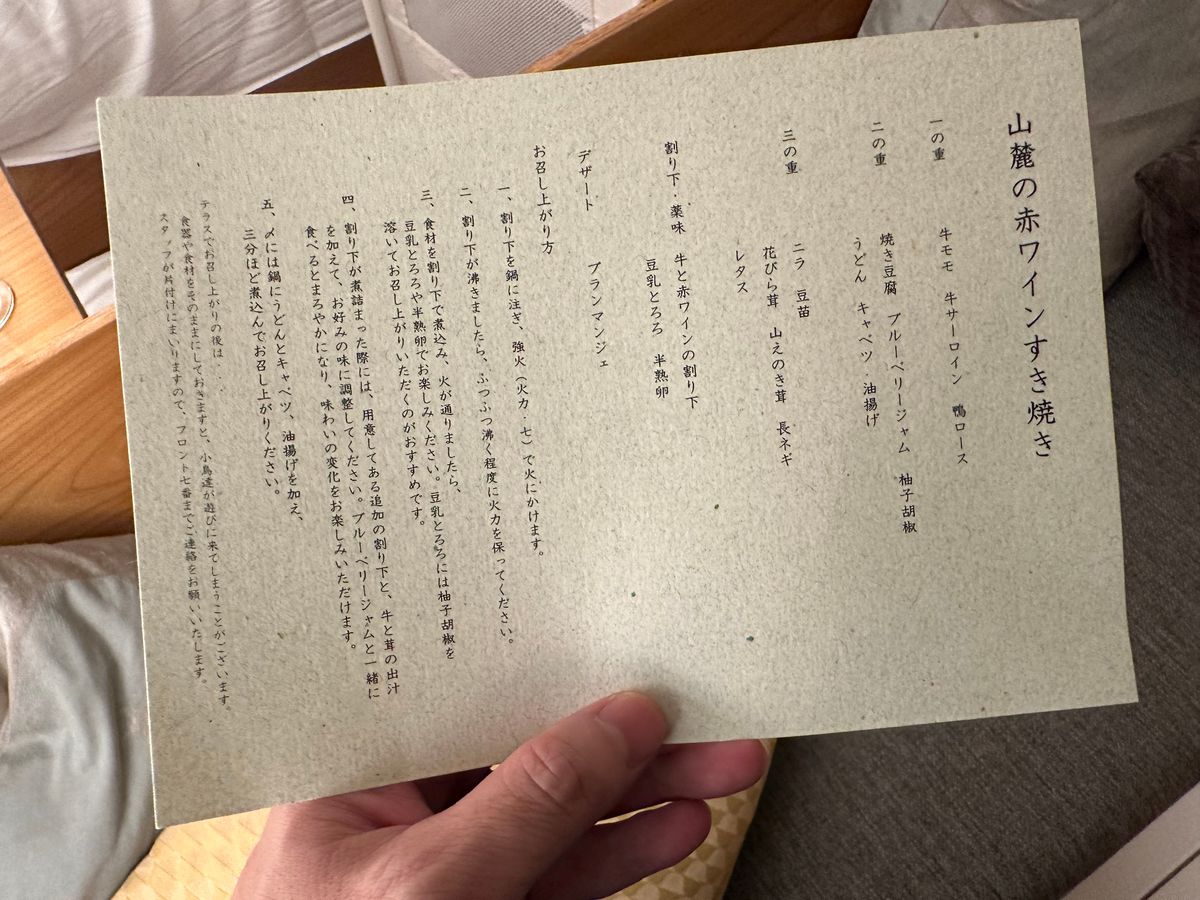 山麓の赤ワインすき焼き
一の重　牛モモ　牛サーロイン　鴨ロース
二の重　焼き豆腐　ブルーベリージャム　柚子胡椒
うどん　キャベツ　油揚げ
三の重　ニラ　豆苗
花びら茸　山えのき茸　長ネギ
レタス
割り下・薬味　牛と赤ワインの割り下
豆乳とろろ　半熟卵
デザート　ブランマンジェ
お召し上がり方
一、割り下を鍋に注ぎ、強火（火力・七）で火にかけます。
二、割り下が沸きましたら、ふつふつ沸く程度に火力を保ってください。
三、食材を割り下で煮込み、火が通りましたら、
豆乳とろろや半熟卵でお楽しみください。豆乳とろろには柚子胡椒を
溶いてお召し上がりいただくのがおすすめです。
四、割り下が煮詰まった際には、用意してある追加の割り下と、牛と茸の出汁
を加えて、お好みの味に調整してください。ブルーベリージャムと一緒に
食べるとまろやかになり、味わいの変化をお楽しみいただけます。
五、〆には鍋にうどんとキャベツ、油揚げを加え、
三分ほど煮込んでお召し上がりください。
テラスでお召し上がりの後は...
食器や食材をそのままにしておきますと、小鳥達が遊びに来てしまうことがございます。
スタッフが片付けにまいりますので、フロント七番までご連絡をお願いいたします。